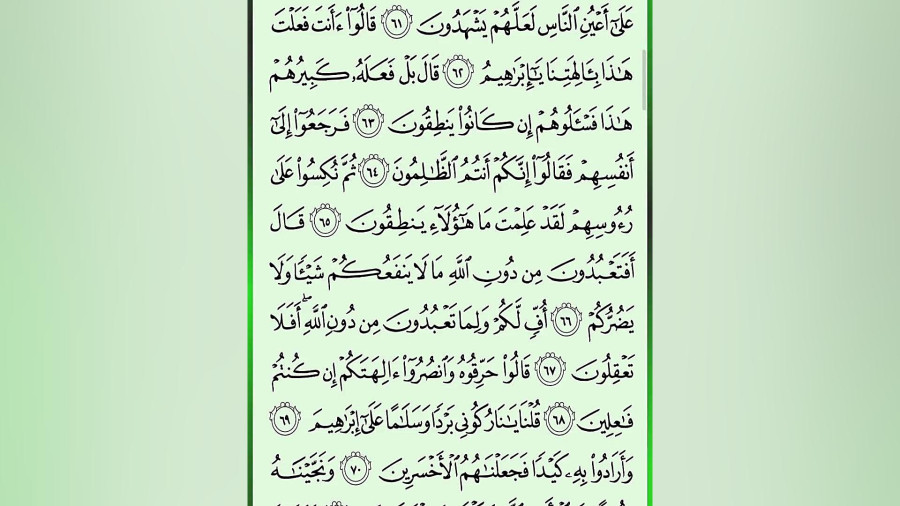 عَلَىٰٓ أَعْيُنِ ٱلنَّاسِ لَعَلَّهُمْ يَشْهَدُونَ ٦١ قَالُوٓا۟ ءَأَنتَ فَعَلْتَ
هَـٰذَا بِـَٔالِهَتِنَا يَـٰٓإِبْرَٰهِيمُ ٦٢ قَالَ بَلْ فَعَلَهُۥ كَبِيرُهُمْ
هَـٰذَا فَسْـَٔلُوهُمْ إِن كَانُوا۟ يَنطِقُونَ ٦٣ فَرَجَعُوٓا۟ إِلَىٰٓ
أَنفُسِهِمْ فَقَالُوٓا۟ إِنَّكُمْ أَنتُمُ ٱلظَّـٰلِمُونَ ٦٤ ثُمَّ نُكِسُوا۟ عَلَىٰ
رُءُوسِهِمْ لَقَدْ عَلِمْتَ مَا هَـٰٓؤُلَآءِ يَنطِقُونَ ٦٥ قَالَ
أَفَتَعْبُدُونَ مِن دُونِ ٱللَّهِ مَا لَا يَنفَعُكُمْ شَيْـًٔا وَلَا
يَضُرُّكُمْ ٦٦ أُفٍّ لَّكُمْ وَلِمَا تَعْبُدُونَ مِن دُونِ ٱللَّهِ ۖ أَفَلَا
تَعْقِلُونَ ٦٧ قَالُوا۟ حَرِّقُوهُ وَٱنصُرُوٓا۟ ءَالِهَتَكُمْ إِن كُنتُمْ
فَـٰعِلِينَ ٦٨ قُلْنَا يَـٰنَارُ كُونِى بَرْدًا وَسَلَـٰمًا عَلَىٰٓ إِبْرَٰهِيمَ ٦٩
وَأَرَادُوا۟ بِهِۦ كَيْدًا فَجَعَلْنَـٰهُمُ ٱلْأَخْسَرِينَ ٧٠ وَنَجَّيْنَـٰهُ